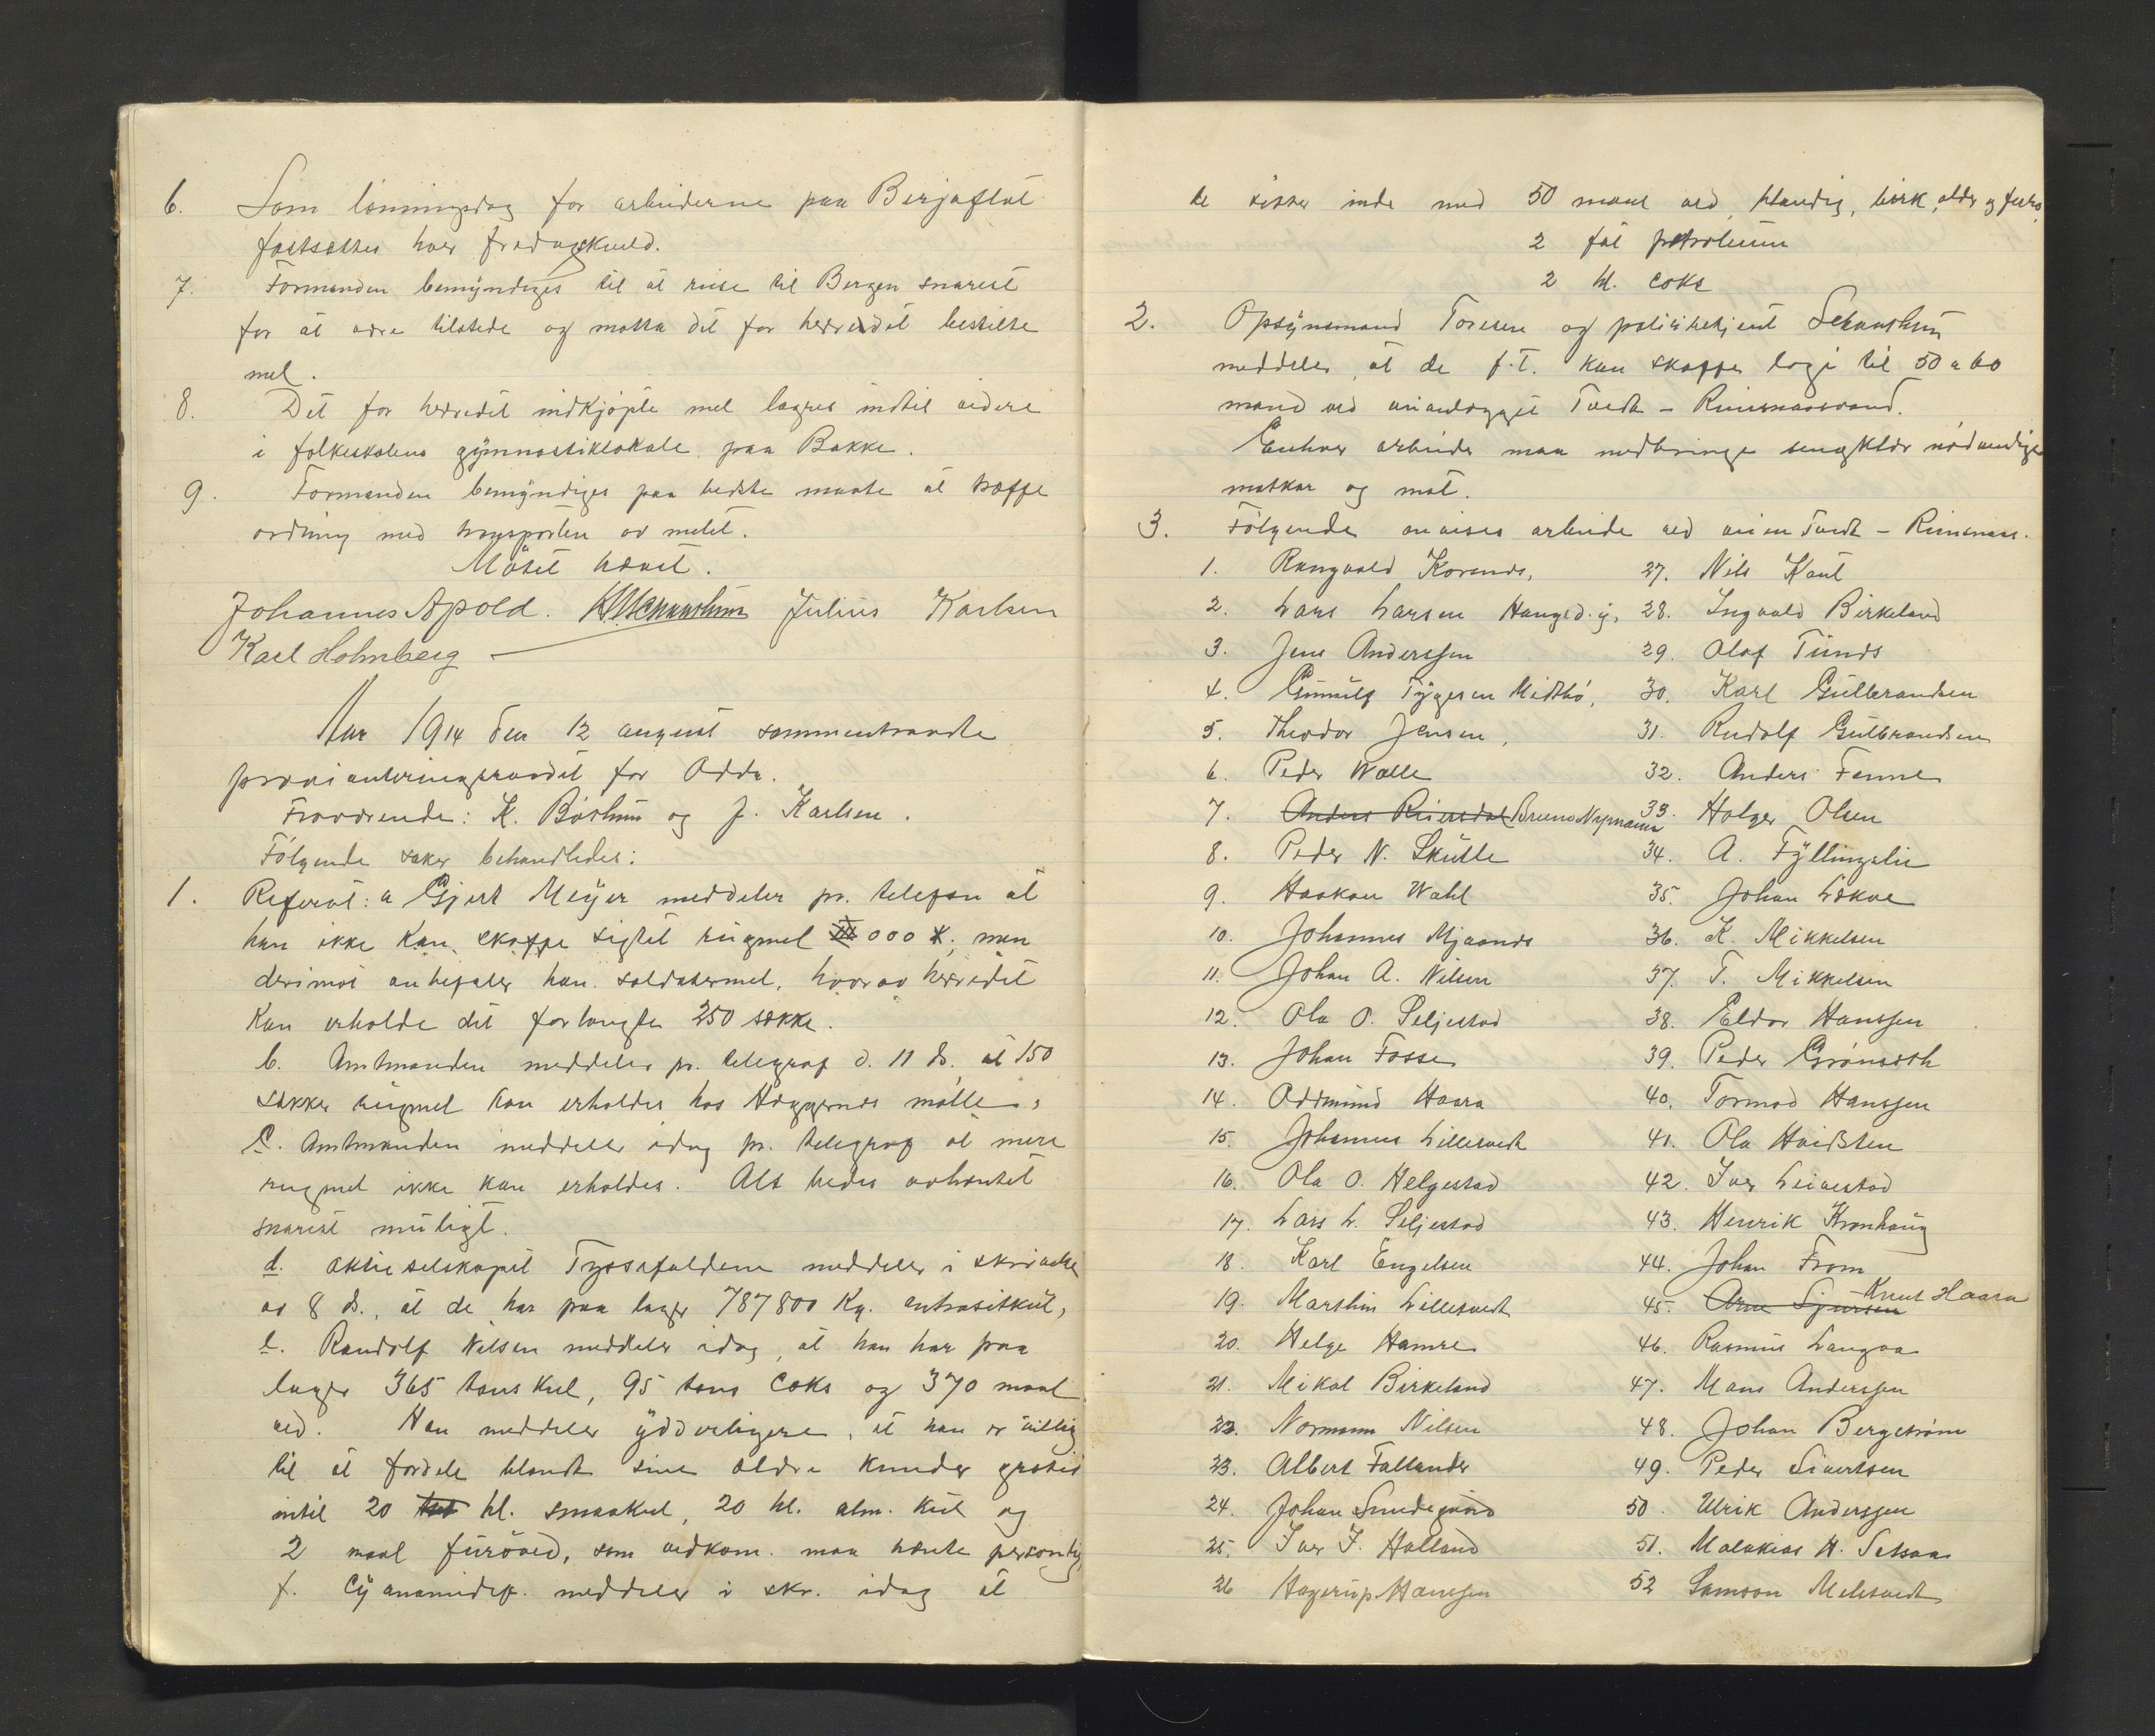 6. Som lønningsdag for arbeiderne paa Berjaflot
fastsættes hver fredagskveld.
7. Formanden bemyndiges til at reise til Bergen snarest
for at være tilstede og motta det for herredet bestilte
mel.
8. Det for herredet indkjøpte mel lagres indtil videre
i folkeskolens gymnastiklokale paa Bakke.
9. Formanden bemyndiges paa bedste maate at træffe
ordning med transporten av melet.
Møtet hævet.
Johannes Apold. Julius Karlsen
Karl Holmberg
Aar 1914 den 12 august sammentraadte
provianteringsraadet for Odda.
Fraværende: K. Børsheim og J. Karlsen.
Følgende saker behandledes:
1. Referat: a Gjert Meyer meddeler pr. telefon at
han ikke kan skaffe sigtet rugmel 000 ; men
derimot anbefaler han soldatermel, hvorav herredet
kan erholde det forlangte 250 sække.
b. Amtmanden meddeler pr. telegraf d. 11 ds. at 150
sækker rugmel kan erholdes hos Vaggernes mølle.
c. Amtmanden meddeler idag pr. telegraf at mere
rugmel ikke kan erholdes. Alt bedes avhentet
snarest muligt.
d. Aktieselskapet Tyssefaldene meddeler i skrivelse
av 8 ds., at de har paa lager 787800 Kg. antrasitkul,
e. Randolf Nilsen meddeler idag, at han har paa
lager 365 tons kul, 95 tons coks og 370 maal
ved. Han meddeler yderligere, at han er villig
til at fordele blandt sine ældre kunder gratis
intil 20 hl. smaakul, 20 hl. alm. kul og
2 maal furuved, som vedkom. maa hente personlig,
f. Cyanamidf. meddeler i skr. idag at
de sitter inde med 50 maal ved, blandig, birk, older og furu,
2 fat petroleum
2 hl. coks
2. Opsynsmand Toresen og politibetjent Schanshun
meddeler, at de f.T. kan skaffe logi til 50 a 60
mand ved veianlægget Tveit - Reinsnaasvand.
Enhver arbeider maa medbringe sengklær nødvendige
matkar og mat.
3. Følgende anvises arbeide ved veien Tveit - Reinsnaas.
1. Rangvald Korsnes,
2. Lars Larsen Hauged. y,
3. Jens Anderssen
4. Gunnulf Tygesen Midtbø,
5. Theodor Jensen,
6. Peder Walle
7. Anders Reinsdal Bruno Nymann
8. Peder N. Skutle
9. Haakon Wahl
10. Johannes Mjaanes
11. Johan A. Nilsen
12. Ola O. Seljestad
13. Johan Fosse
14. Oddmund Haara
15. Johannes Lilletvedt
16. Ola O. Helgestad
17. Lars L. Seljestad
18. Karl Engelsen
19. Marthin Lilletvedt
20. Helge Hamre
21. Mikal Birkeland
22. Normann Nilsen
23. Albert Fallander
24. Johan Sundegaard
25. Iver J. Halland
26 Hagerup Hanssen
27. Nils Kaut
28. Ingvald Birkeland
29. Olaf Tunds
30. Karl Gulbrandsen
31. Rudolf Gulbrandsen
32. Anders Fenne
33. Holger Olsen
34. A. Fyllingslie
35. Johan Løkve
36. K. Mikkelsen
37. T. Mikkelsen
38. Eldor Hanssen
39. Peder Grønseth
40. Tormod Hanssen
41. Ola Hvidsten
42. Iver Leivestad
43. Henrik Kronhaug
44. Johan From
45. Arne Sjursen Knut Haara
46. Rasmus Langva
47. Mons Anderssen
48. Johan Bergstrøm
49. Peder Sivertsen
50. Ulrik Anderssen
51. Malakias H. Satsaas
52 Samson Melstvedt